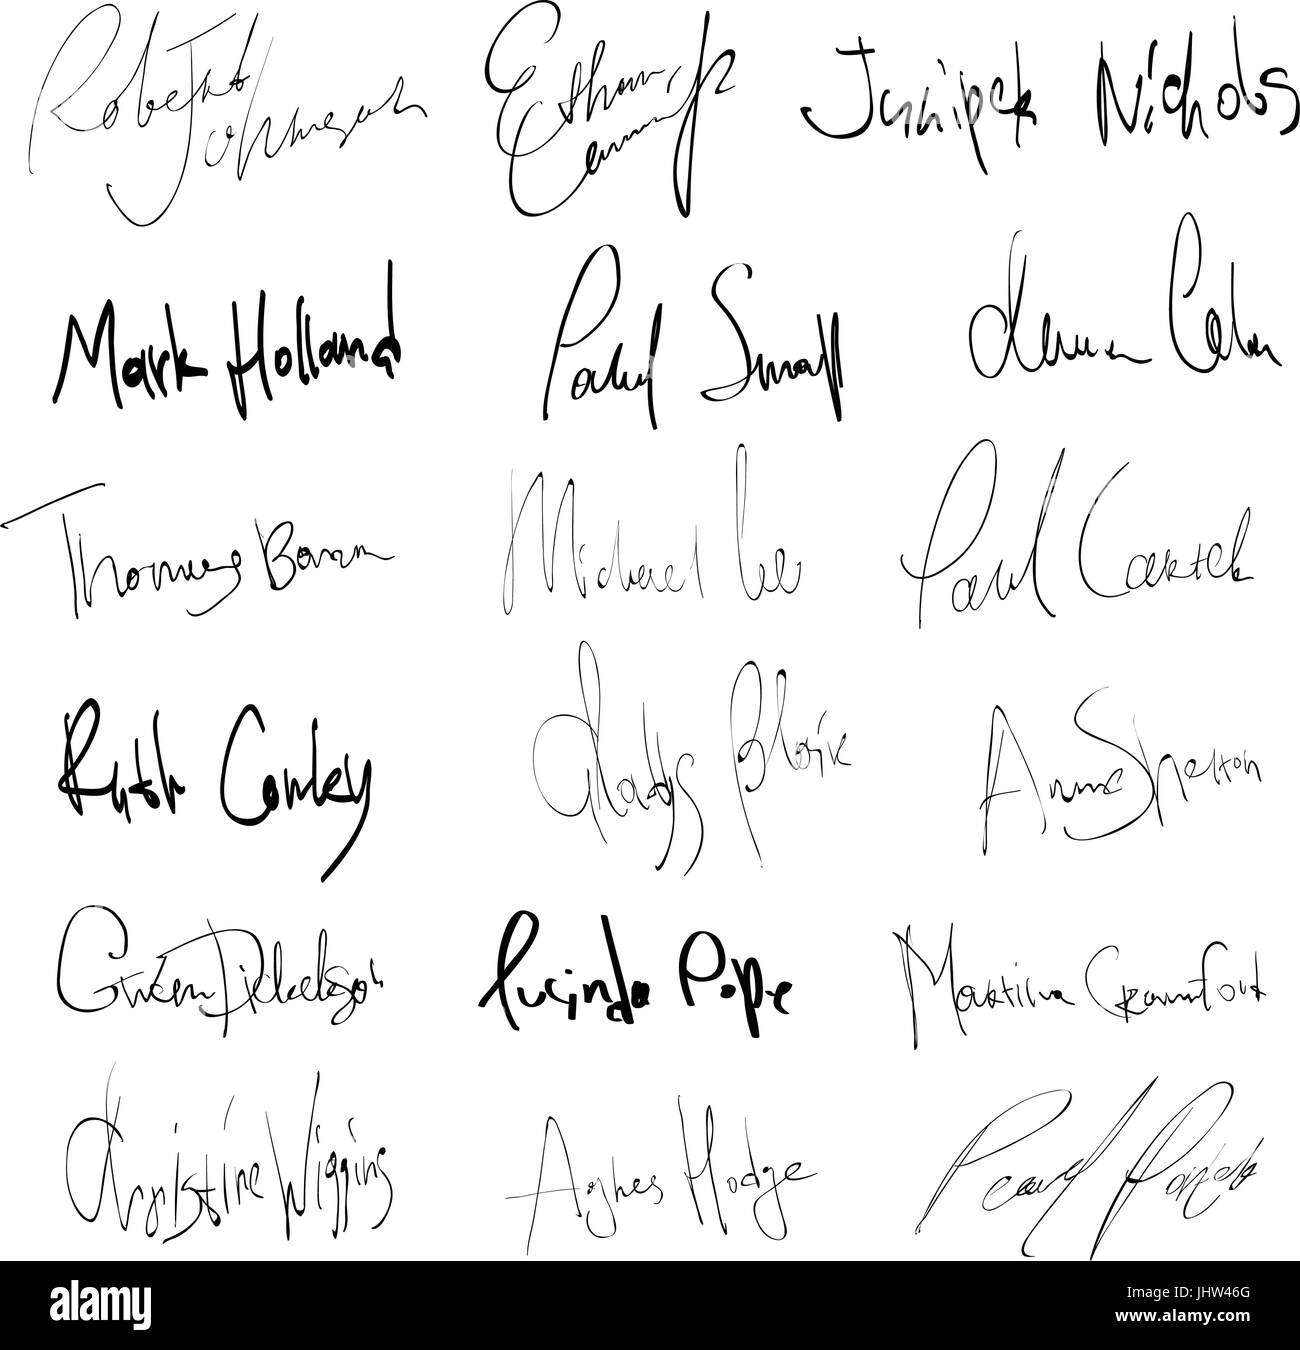 Robert Johnson
Ethan
Juniper Nichols
Mark Holland
Paul Small
Thomas Baron
Michael Lee
Paul Carrick
Ruth Conley
Gladys Blair
Anne Shelton
Gwen Dickerson
Lucinda Pope
Martina Crawford
Christine Wiggins
Agnes Hodge
Pearl
alamy stock photo
alamy
a
a
alamy
JHW46G
www.alamy.com